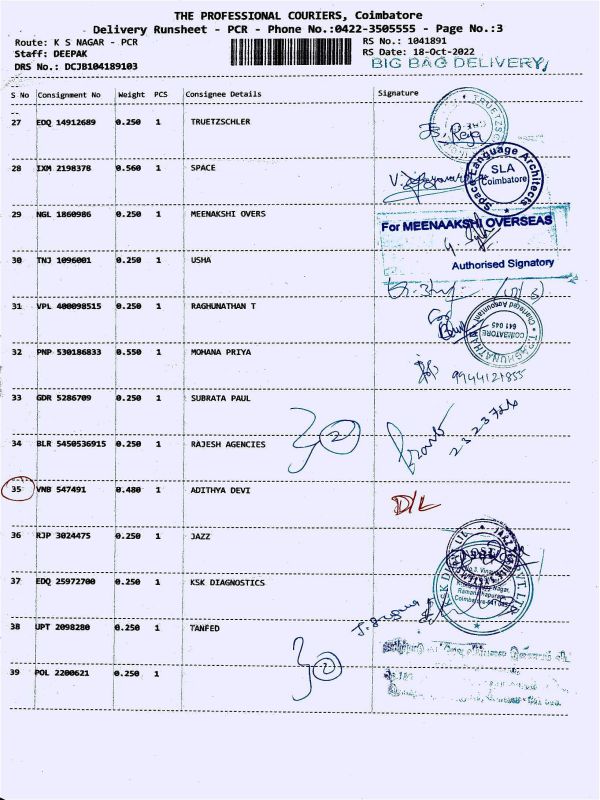 THE PROFESSIONAL COURIERS, Coimbatore
Delivery Runsheet - PCR - Phone No.:0422-3505555 - Page No.:3
Route: K S NAGAR - PCR
RS No.: 1041891
Staff: DEEPAK
RS Date: 18-Oct-2022
DRS No.: DCJB104189103
BIG BAG DELIVERY,
S No Consignment No Weight PCS Consignee Details Signature
27 EDQ 14912689 0.250 1 TRUETZSCHLER
28 IXM 2198378 0.560 1 SPACE
Space Language Architects
SLA
Coimbatore
29 NGL 1860986 0.250 1 MEENAKSHI OVERS
For MEENAAKSHI OVERSEAS
Authorised Signatory
30 TNJ 1096001 0.250 1 USHA
31 VPL 400098515 0.250 1 RAGHUNATHAN T
Chartered Accountant
COIMBATORE
641 045
32 PNP 530186833 0.550 1 MOHANA PRIYA
9944121855
33 GDR 5286709 0.250 1 SUBRATA PAUL
34 BLR 5450536915 0.250 1 RAJESH AGENCIES
2
35 VNB 547491 0.480 1 ADITHYA DEVI
D/L
36 RJP 3024475 0.250 1 JAZZ
37 EDQ 25972700 0.250 1 KSK DIAGNOSTICS
38 UPT 2098280 0.250 1 TANFED
39 POL 2200621 0.250 1
2